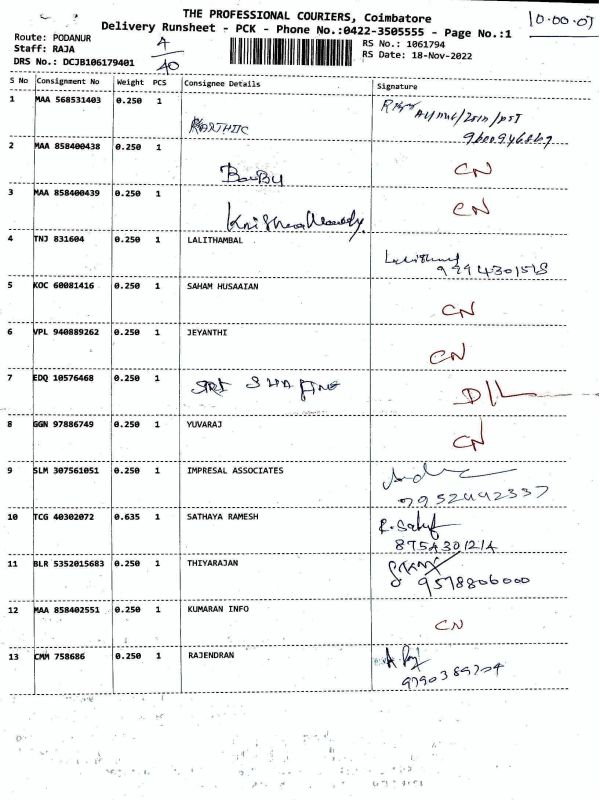 THE PROFESSIONAL COURIERS, Coimbatore
Delivery Runsheet - PCK - Phone No.:0422-3505555 - Page No.:1
10.00.05
Route: PODANUR
Staff: RAJA
DRS No.: DCJB106179401
4/40
RS No.: 1061794
RS Date: 18-Nov-2022
S No Consignment No Weight PCS Consignee Details Signature
1 MAA 568531403 0.250 1 KARTHIC
2 MAA 858400438 0.250 1 BABU CN
3 MAA 858400439 0.250 1 CN
4 TNJ 831604 0.250 1 LALITHAMBAL
5 KOC 60081416 0.250 1 SAHAM HUSAAIAN CN
6 VPL 940889262 0.250 1 JEYANTHI CN
7 EDQ 10576468 0.250 1 D/L
8 GGN 97886749 0.250 1 YUVARAJ CN
9 SLM 307561051 0.250 1 IMPRESAL ASSOCIATES
7952442337
10 TCG 40302072 0.635 1 SATHAYA RAMESH
8754301214
11 BLR 5352015683 0.250 1 THIYARAJAN
9578806000
12 MAA 858402551 0.250 1 KUMARAN INFO CN
13 CMM 758686 0.250 1 RAJENDRAN
9790389704